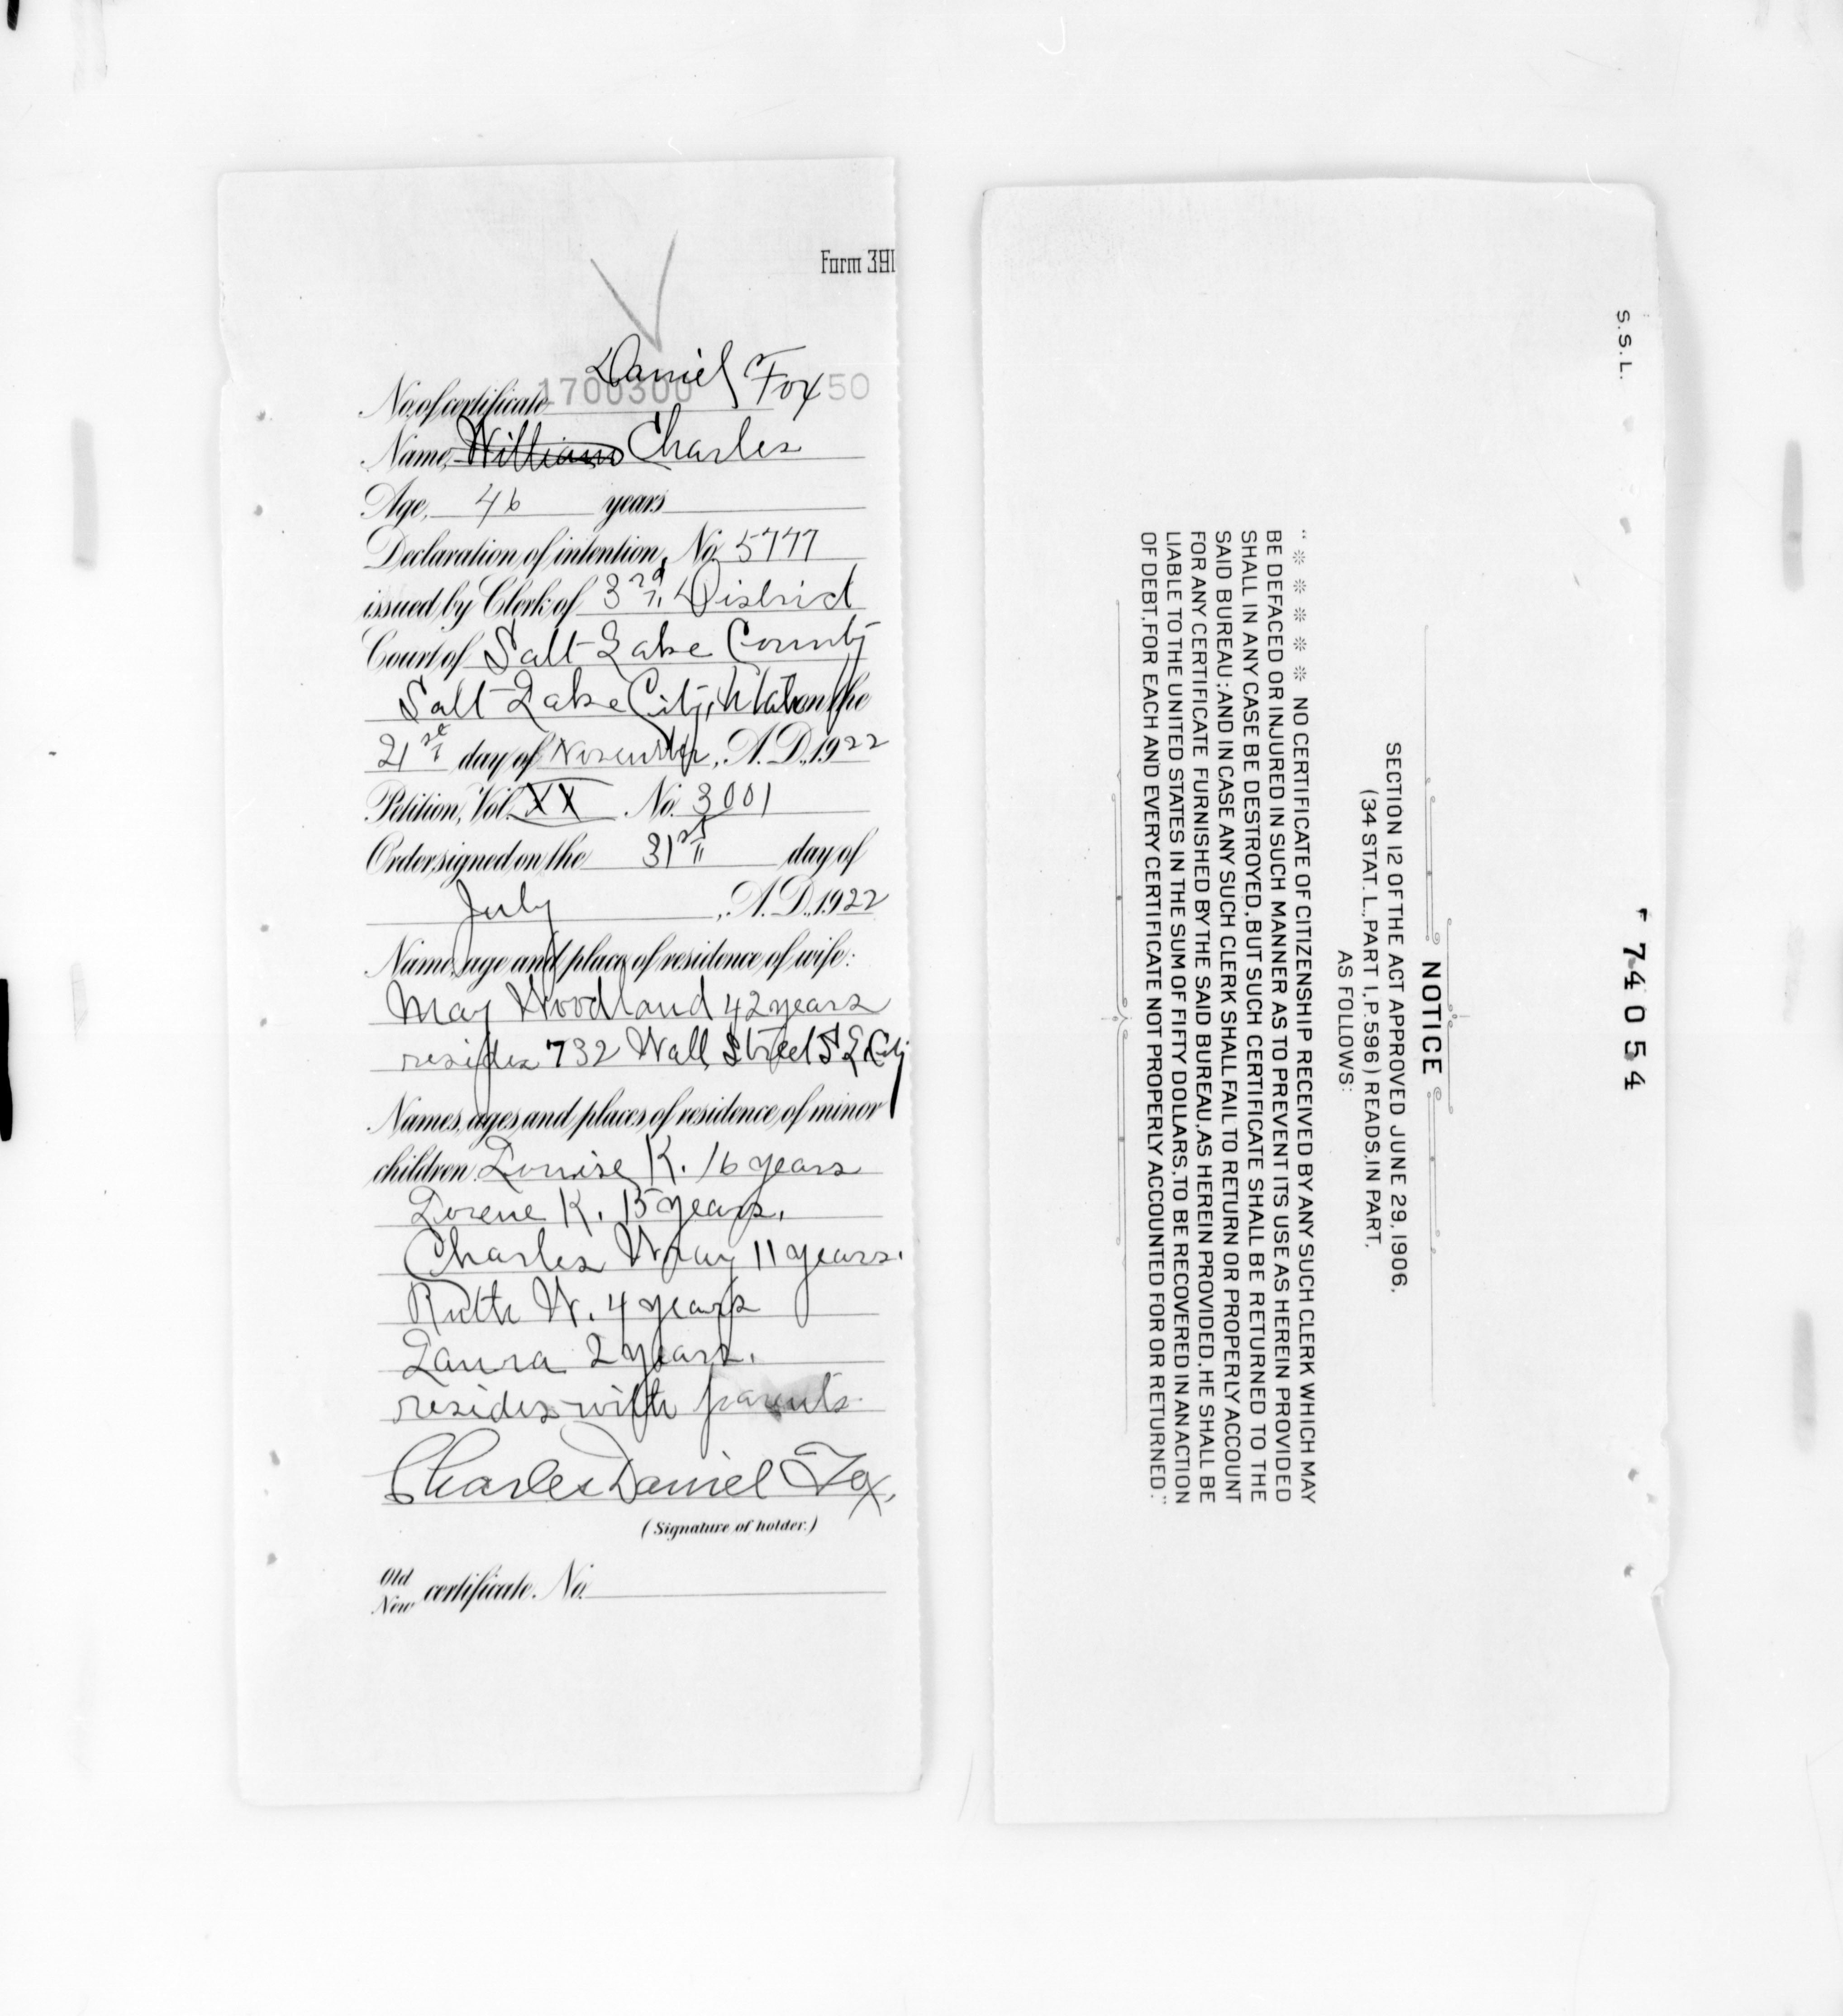 Form 391
Daniel Fox
No. of certificate 1700300 50
Name, William Charles
Age, 46 years
Declaration of intention, No. 5777
issued by Clerk of 3rd District
Court of Salt Lake County
Salt Lake City, Utah on the
21st day of November, A.D. 1922
Petition, Vol. XX No. 3001
Order signed on the 31st day of
July, A.D. 1922
Name, age and place of residence of wife:
May Woodland 42 years
resides 732 Wall Street S L City
Names, ages and places of residence of minor
children Louise K. 16 years
Lorene K. 15 years.
Charles Wray 11 years.
Ruth W. 4 years
Laura 2 years.
resides with parents
Charles Daniel Fox.
(Signature of holder.)
Old
New certificate. No.
S.S.L.
74054
NOTICE
SECTION 12 OF THE ACT APPROVED JUNE 29, 1906,
(34 STAT. L., PART I, P. 596) READS, IN PART,
AS FOLLOWS:
" * * * * * NO CERTIFICATE OF CITIZENSHIP RECEIVED BY ANY SUCH CLERK WHICH MAY
BE DEFACED OR INJURED IN SUCH MANNER AS TO PREVENT ITS USE AS HEREIN PROVIDED
SHALL IN ANY CASE BE DESTROYED, BUT SUCH CERTIFICATE SHALL BE RETURNED TO THE
SAID BUREAU; AND IN CASE ANY SUCH CLERK SHALL FAIL TO RETURN OR PROPERLY ACCOUNT
FOR ANY CERTIFICATE FURNISHED BY THE SAID BUREAU, AS HEREIN PROVIDED, HE SHALL BE
LIABLE TO THE UNITED STATES IN THE SUM OF FIFTY DOLLARS, TO BE RECOVERED IN AN ACTION
OF DEBT, FOR EACH AND EVERY CERTIFICATE NOT PROPERLY ACCOUNTED FOR OR RETURNED."